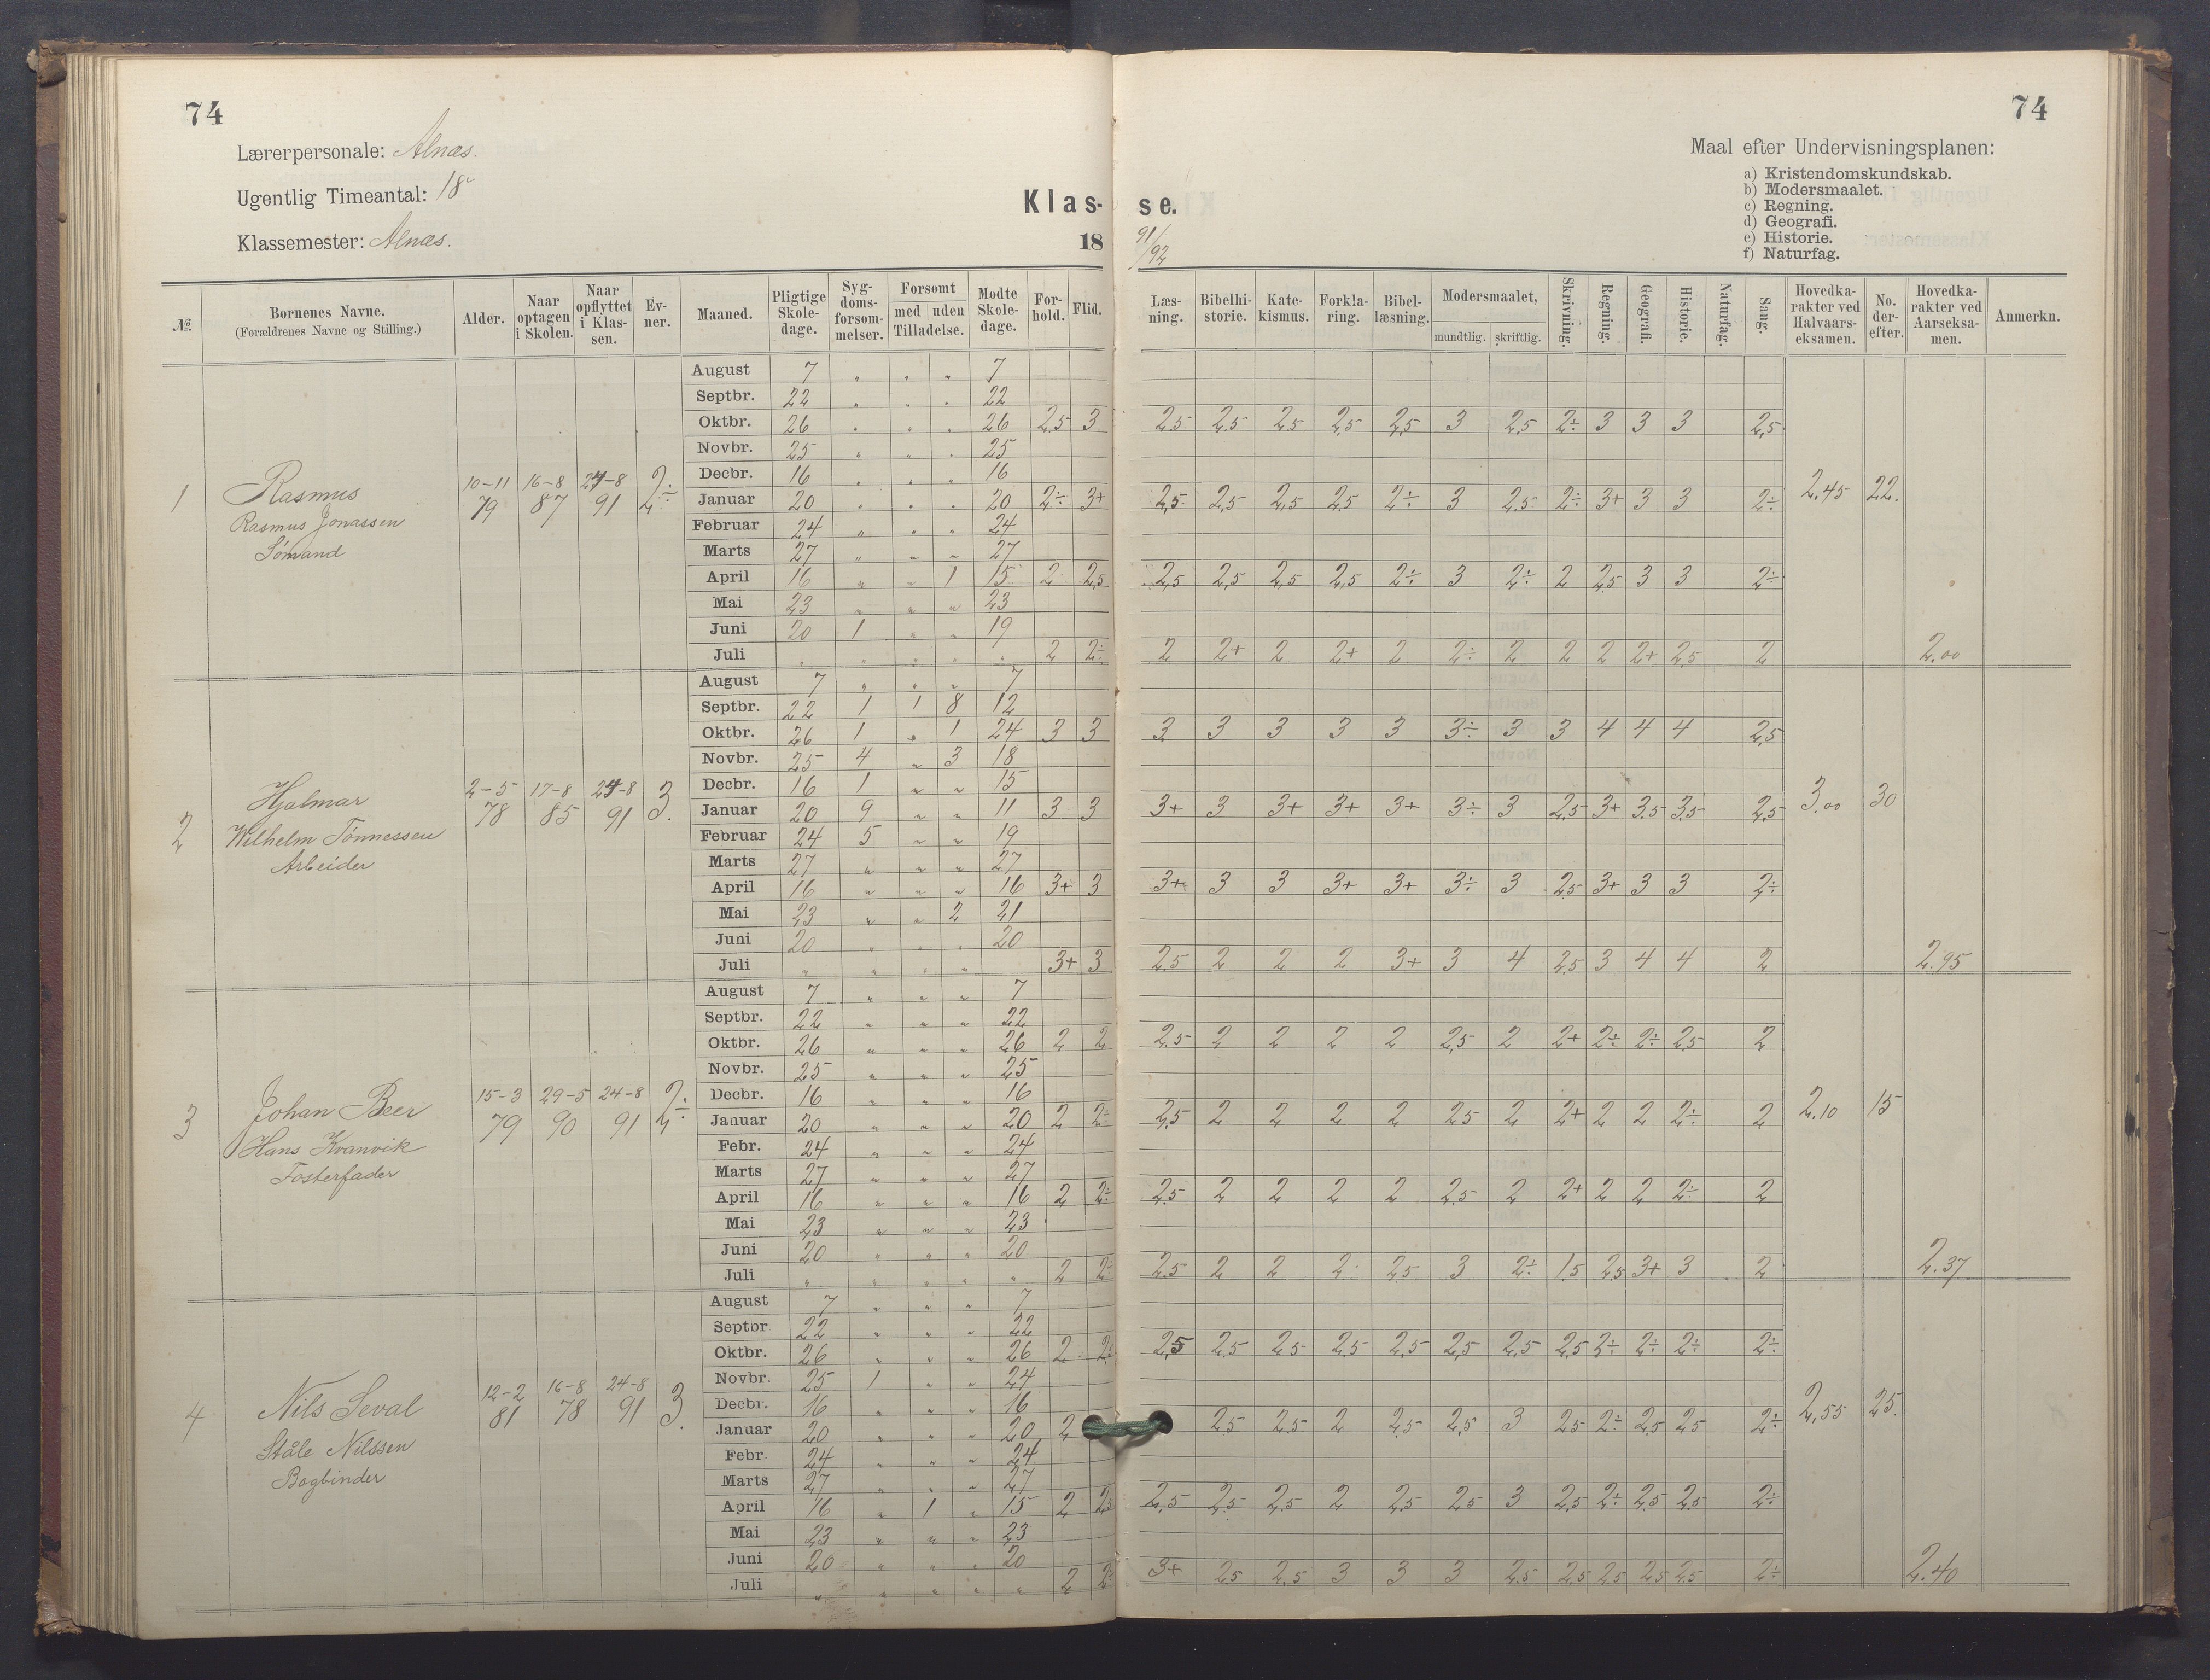 74
74
Lærerpersonale: Alnæs.
Ugentlig Timeantal: 18
Klassemester: Alnæs.
Klas- se.
18 91/92
Maal efter Undervisningsplanen:
a) Kristendomskundskab.
b) Modersmaalet.
c) Regning.
d) Geografi.
e) Historie.
f) Naturfag.
№ Bornenes Navne. (Forældrenes Navne og Stilling.) Alder. Naar optagen i Skolen. Naar opflyttet i Klassen. Evner. Maaned. Pligtige Skoledage. Sygdomsforsommelser. Forsomt med uden Tilladelse. Modte Skoledage. Forhold. Flid. Læsning. Bibelhistorie. Katekismus. Forklaring. Bibellæsning. Modersmaalet, mundtlig. skriftlig. Skrivning. Regning. Geografi. Historie. Naturfag. Sang. Hovedkarakter ved Halvaarseksamen. No. derefter. Hovedkarakter ved Aarseksamen. Anmerkn.
1 Rasmus
Rasmus Jonassen
Sómand
10-11 79 16-8 87 24-8 91 2÷
August 7 " " " 7
Septbr. 22 " " " 22
Oktbr. 26 " " " 26 2,5 3 2,5 2,5 2,5 2,5 2,5 3 2,5 2÷ 3 3 3 2,5
Novbr. 25 " " " 25
Decbr. 16 " " " 16
Januar 20 " " " 20 2÷ 3+ 2,5 2,5 2,5 2,5 2÷ 3 2,5 2÷ 3+ 3 3 2÷ 2.45 22.
Februar 24 " " " 24
Marts 27 " " " 27
April 16 " " 1 15 2 2,5 2,5 2,5 2,5 2,5 2÷ 3 2÷ 2 2,5 3 3 2÷
Mai 23 " " " 23
Juni 20 1 " " 19
Juli " " " " " 2 2÷ 2 2+ 2 2+ 2 2÷ 2 2 2 2+ 2,5 2 2.00
2 Hjalmar
Wilhelm Tónnessen
Arbeider
2-5 78 17-8 85 24-8 91 3.
August 7 " " " 7
Septbr. 22 1 1 8 12
Oktbr. 26 1 " 1 24 3 3 3 3 3 3 3 3÷ 3 3 4 4 4 2,5
Novbr. 25 4 " 3 18
Decbr. 16 1 " " 15
Januar 20 9 " " 11 3 3 3+ 3 3+ 3+ 3+ 3÷ 3 2,5 3+ 3,5 3,5 2,5 3.00 30
Februar 24 5 " " 19
Marts 27 " " " 27
April 16 " " " 16 3+ 3 3+ 3 3 3+ 3+ 3÷ 3 2,5 3+ 3 3 2÷
Mai 23 " " 2 21
Juni 20 " " " 20
Juli " " " " 3+ 3 2,5 2 2 2 3+ 3 4 2,5 3 4 4 2 2.95
3 Johan Beer
Hans Kvanvik
Fosterfader
15-3 79 29-5 90 24-8 91 2÷
August 7 " " " 7
Septbr. 22 " " " 22
Oktbr. 26 " " " 26 2 2 2,5 2 2 2 2 2,5 2 2+ 2÷ 2÷ 2,5 2
Novbr. 25 " " " 25
Decbr. 16 " " " 16
Januar 20 " " " 20 2 2÷ 2,5 2 2 2 2 2,5 2 2+ 2 2 2÷ 2 2.10 15
Febr. 24 " " " 24
Marts 27 " " " 27
April 16 " " " 16 2 2÷ 2,5 2 2 2 2 2,5 2 2+ 2 2 2÷ 2
Mai 23 " " " 23
Juni 20 " " " 20
Juli " " " " " 2 2÷ 2,5 2 2 2 2,5 3 2÷ 1,5 2,5 3+ 3 2 2.37
4 Nils Seval
Ståle Nilssen
Bogbinder
12-2 81 16-8 78 24-8 91 3.
August 7 " " " 7
Septbr 22 " " " 22
Oktbr. 26 " " " 26 2 2,5 2,5 2,5 2,5 2,5 2,5 2,5 2,5 2,5 2÷ 2÷ 2÷ 2÷
Novbr. 25 1 " " 24
Decbr. 16 " " " 16
Januar 20 " " " 20 2 2,5 2,5 2 2,5 2,5 3 2,5 2÷ 2,5 2,5 2÷ 2,55 25.
Febr. 24 " " " 24
Marts 27 " " " 27
April 16 " 1 " 15 2 2,5 2,5 2,5 2,5 2 2,5 2,5 3 2,5 2÷ 2,5 2,5 2÷
Mai 23 " " " 23
Juni 20 " " " 20
Juli " " " " " 2 2÷ 3+ 2,5 2,5 3 3 3 2,5 2,5 2,5 2,5 2,5 2÷ 2.40